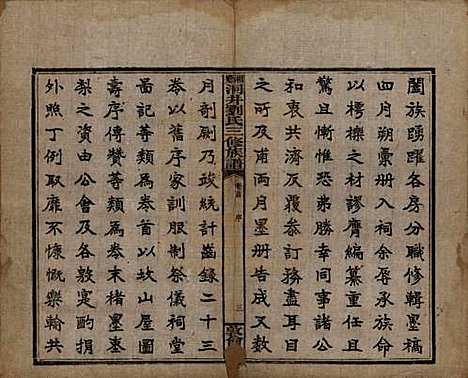 闔族踴躍各房分職修輯墨稿
四月朔彙白入祠余辱承族命
以樗櫟之材謬膺編纂重任且
驚且喜弗勝幸同事諸公
和衷共濟本本務盡耳目
之所及甫兩月墨册告成又數
洞井劉氏三修族譜
卷首 序 三
敦睦
月剞劂乃竣統計齒錄二十三
卷以舊序家訓服制祭儀祠堂
啚記等類為卷首以故山屋圖
壽序傳贊等類為卷末楮墨棗
梨之資由公會及各敦寔酌捐
外照丁例取靡不慷慨樂輸共